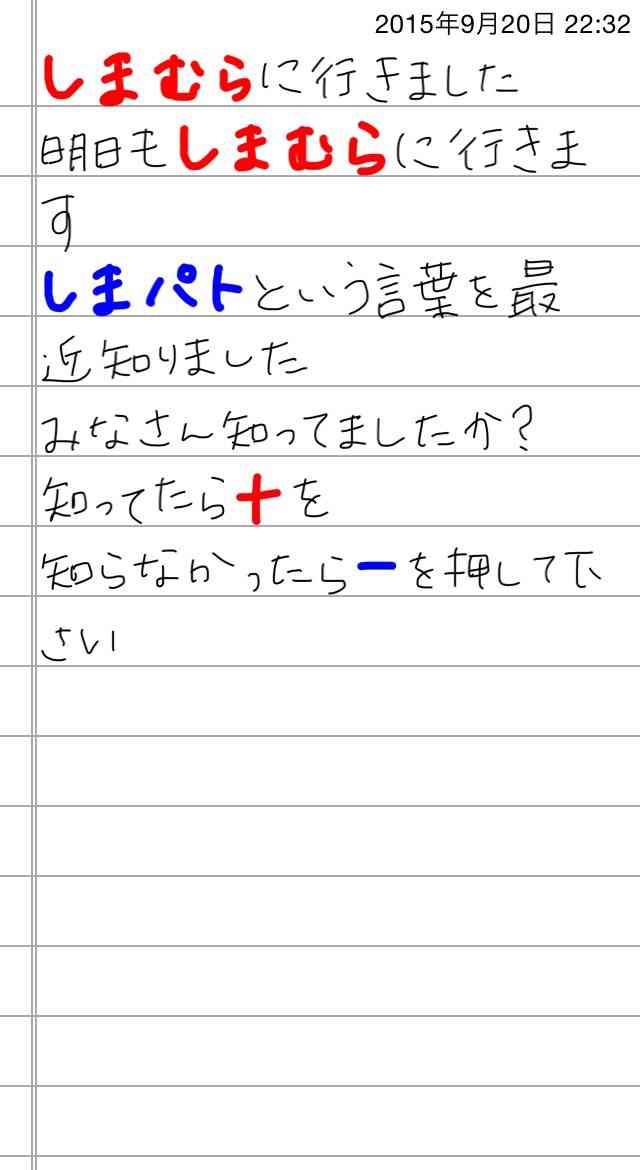 2015年9月20日 22:32
しまむらに行きました
明日もしまむらに行きま
す
しまパトという言葉を最
近知りました
みなさん知ってましたか?
知ってたら+を
知らなかったら−を押して下
さい